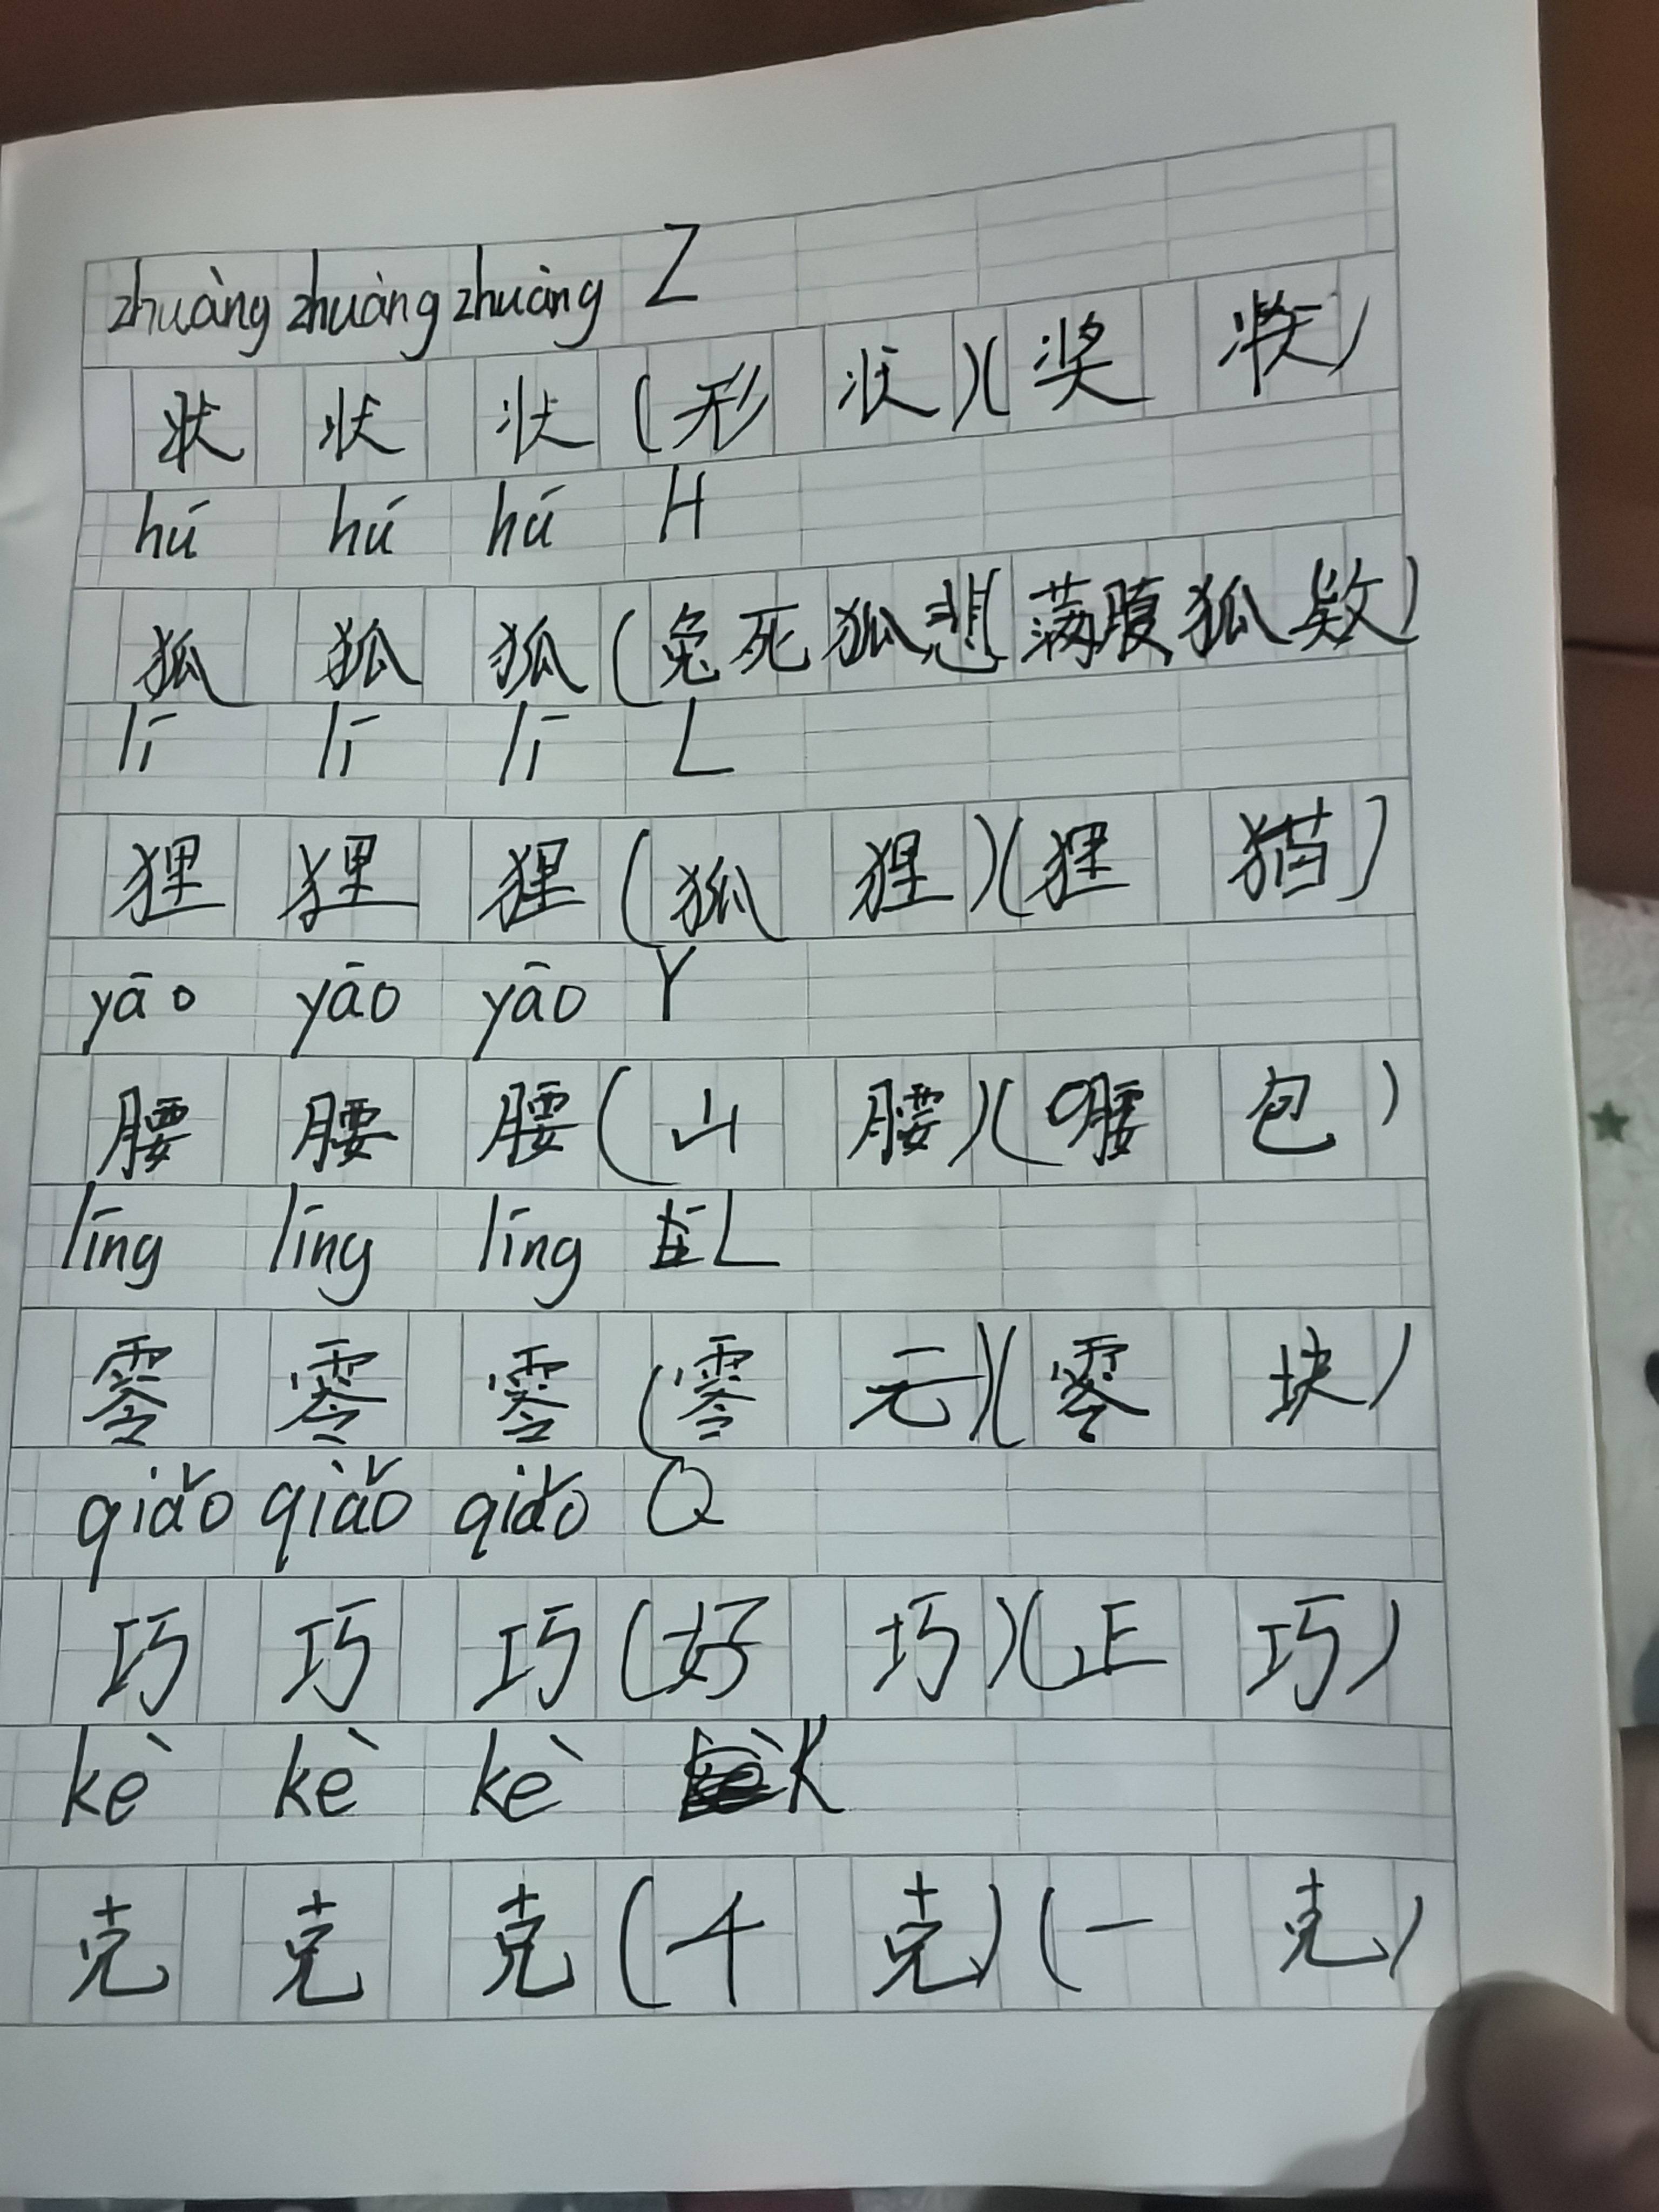 zhuàng zhuàng zhuàng Z
状 状 状 (形 状)(奖 状)
hú hú hú H
狐 狐 狐 (兔死狐悲 满腹狐疑)
lí lí lí L
狸 狸 狸 (狐 狸)(狸 猫)
yāo yāo yāo Y
腰 腰 腰 (山 腰)(腰 包)
líng líng líng L
零 零 零 (零 元)(零 块)
qiǎo qiǎo qiǎo Q
巧 巧 巧 (好 巧)(正 巧)
kè kè kè K
克 克 克 (千 克)(一 克)